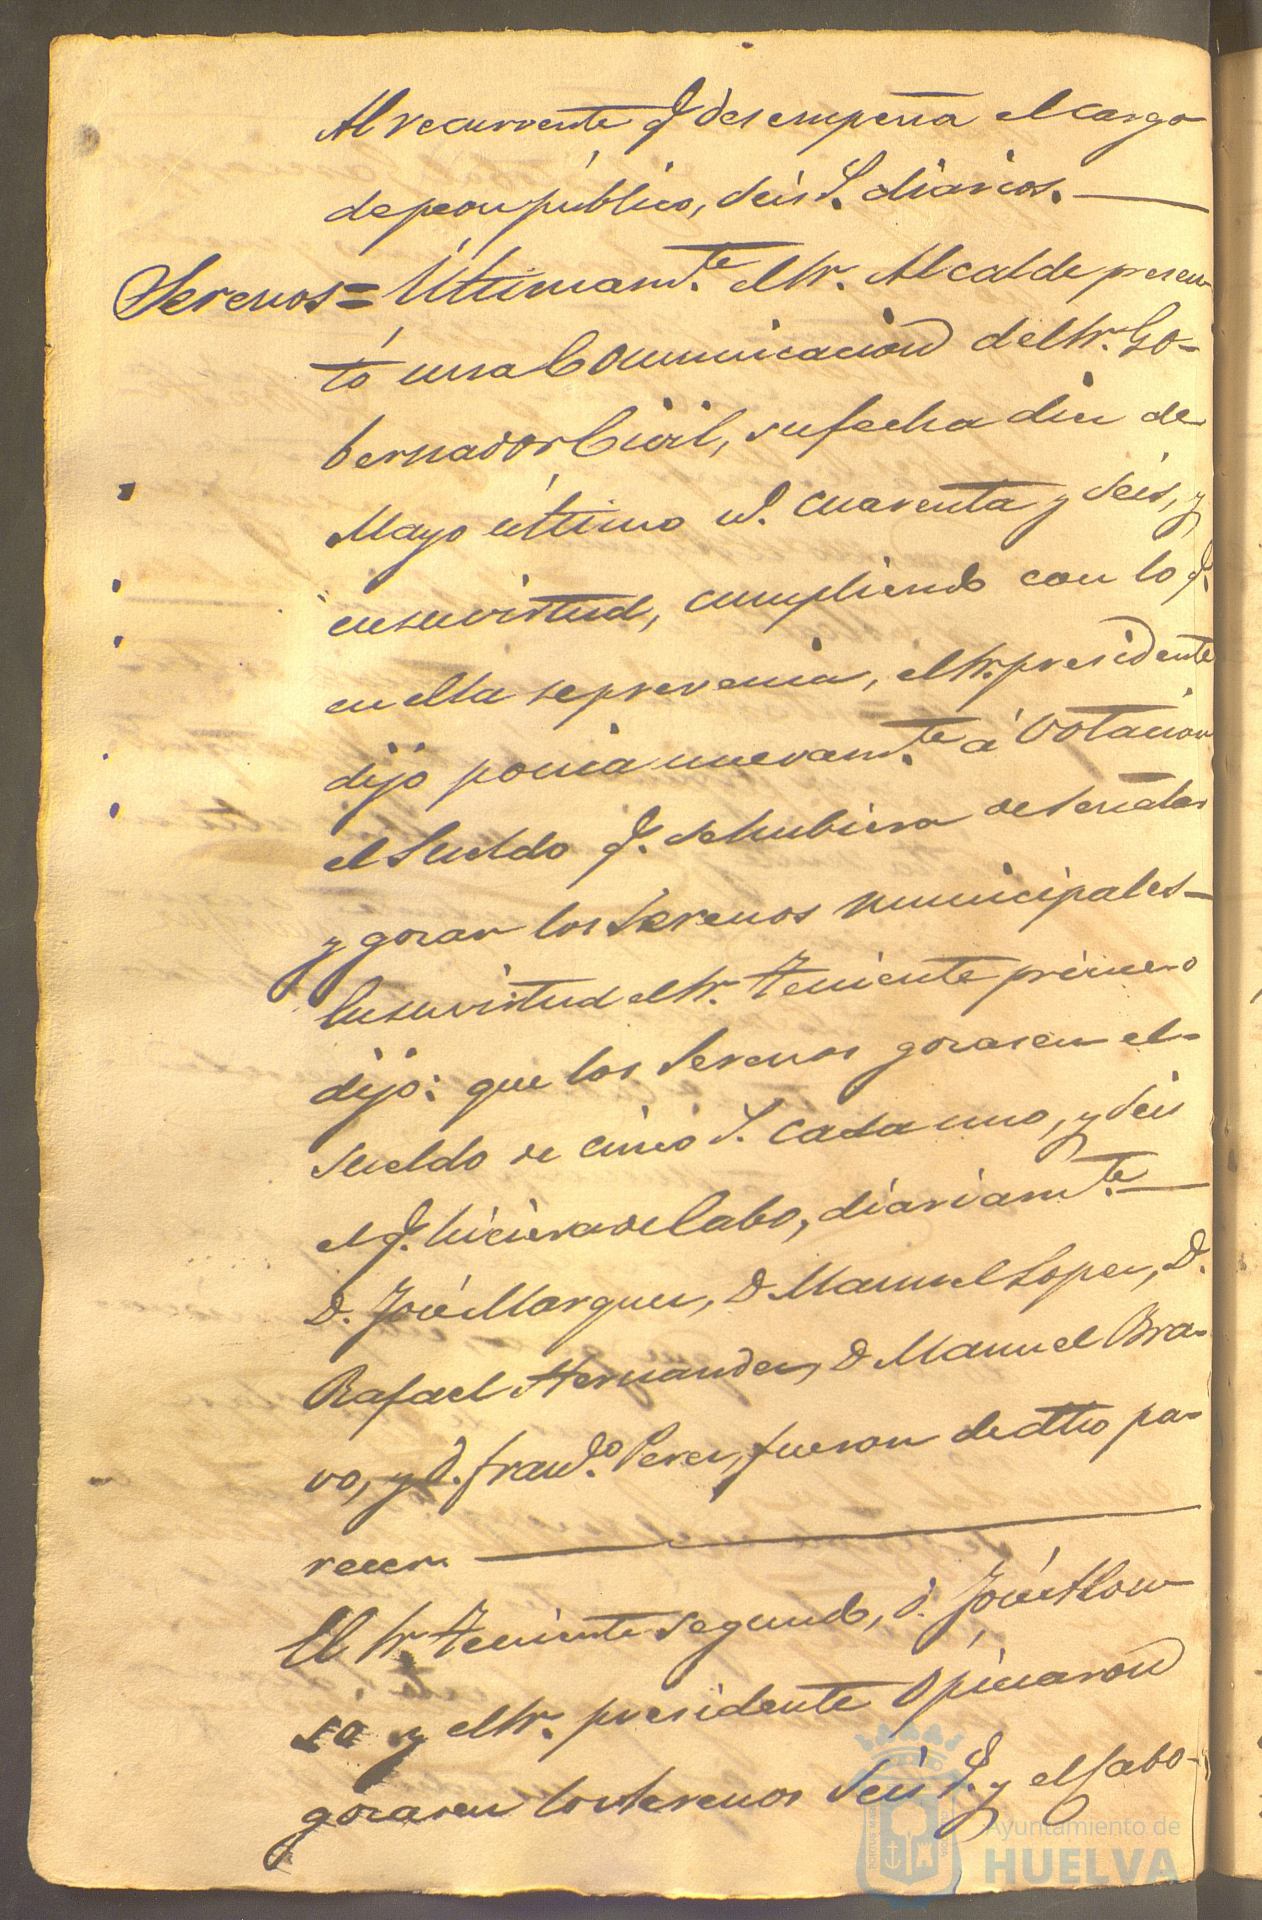 Al recurrente q. desempeña el cargo
de peon público, seis r. diarios.
Serenos = Ultimam.te el Sr. Alcalde presen
tó una Comunicacion del Sr. Go-
bernador Civil, su fecha diez de
Mayo último n. cuarenta y seis, y
en su virtud, cumpliendo con lo q.
en ella se prevenia, el Sr. presidente
dijo ponia nuevam.te á votacion
el sueldo q. se hubiera de señalar
y gozar los Serenos municipales-
En su virtud el Sr. Teniente primero
dijo: que los Serenos gozasen el-
sueldo de cinco r. cada uno, y seis
el q. hiciera de Cabo, diariam.te
D. José Marquez, D Manuel Lopez, D.
Rafael Hernandez, D Manuel Bra-
vo, y D. Fran.co Perez, fueron de dho pa-
recer.
El Sr. Teniente segundo, D. José Alon
so y el Sr. presidente opinaron
gozasen los Serenos seis r. y el Cabo-
Ayuntamiento de
HUELVA